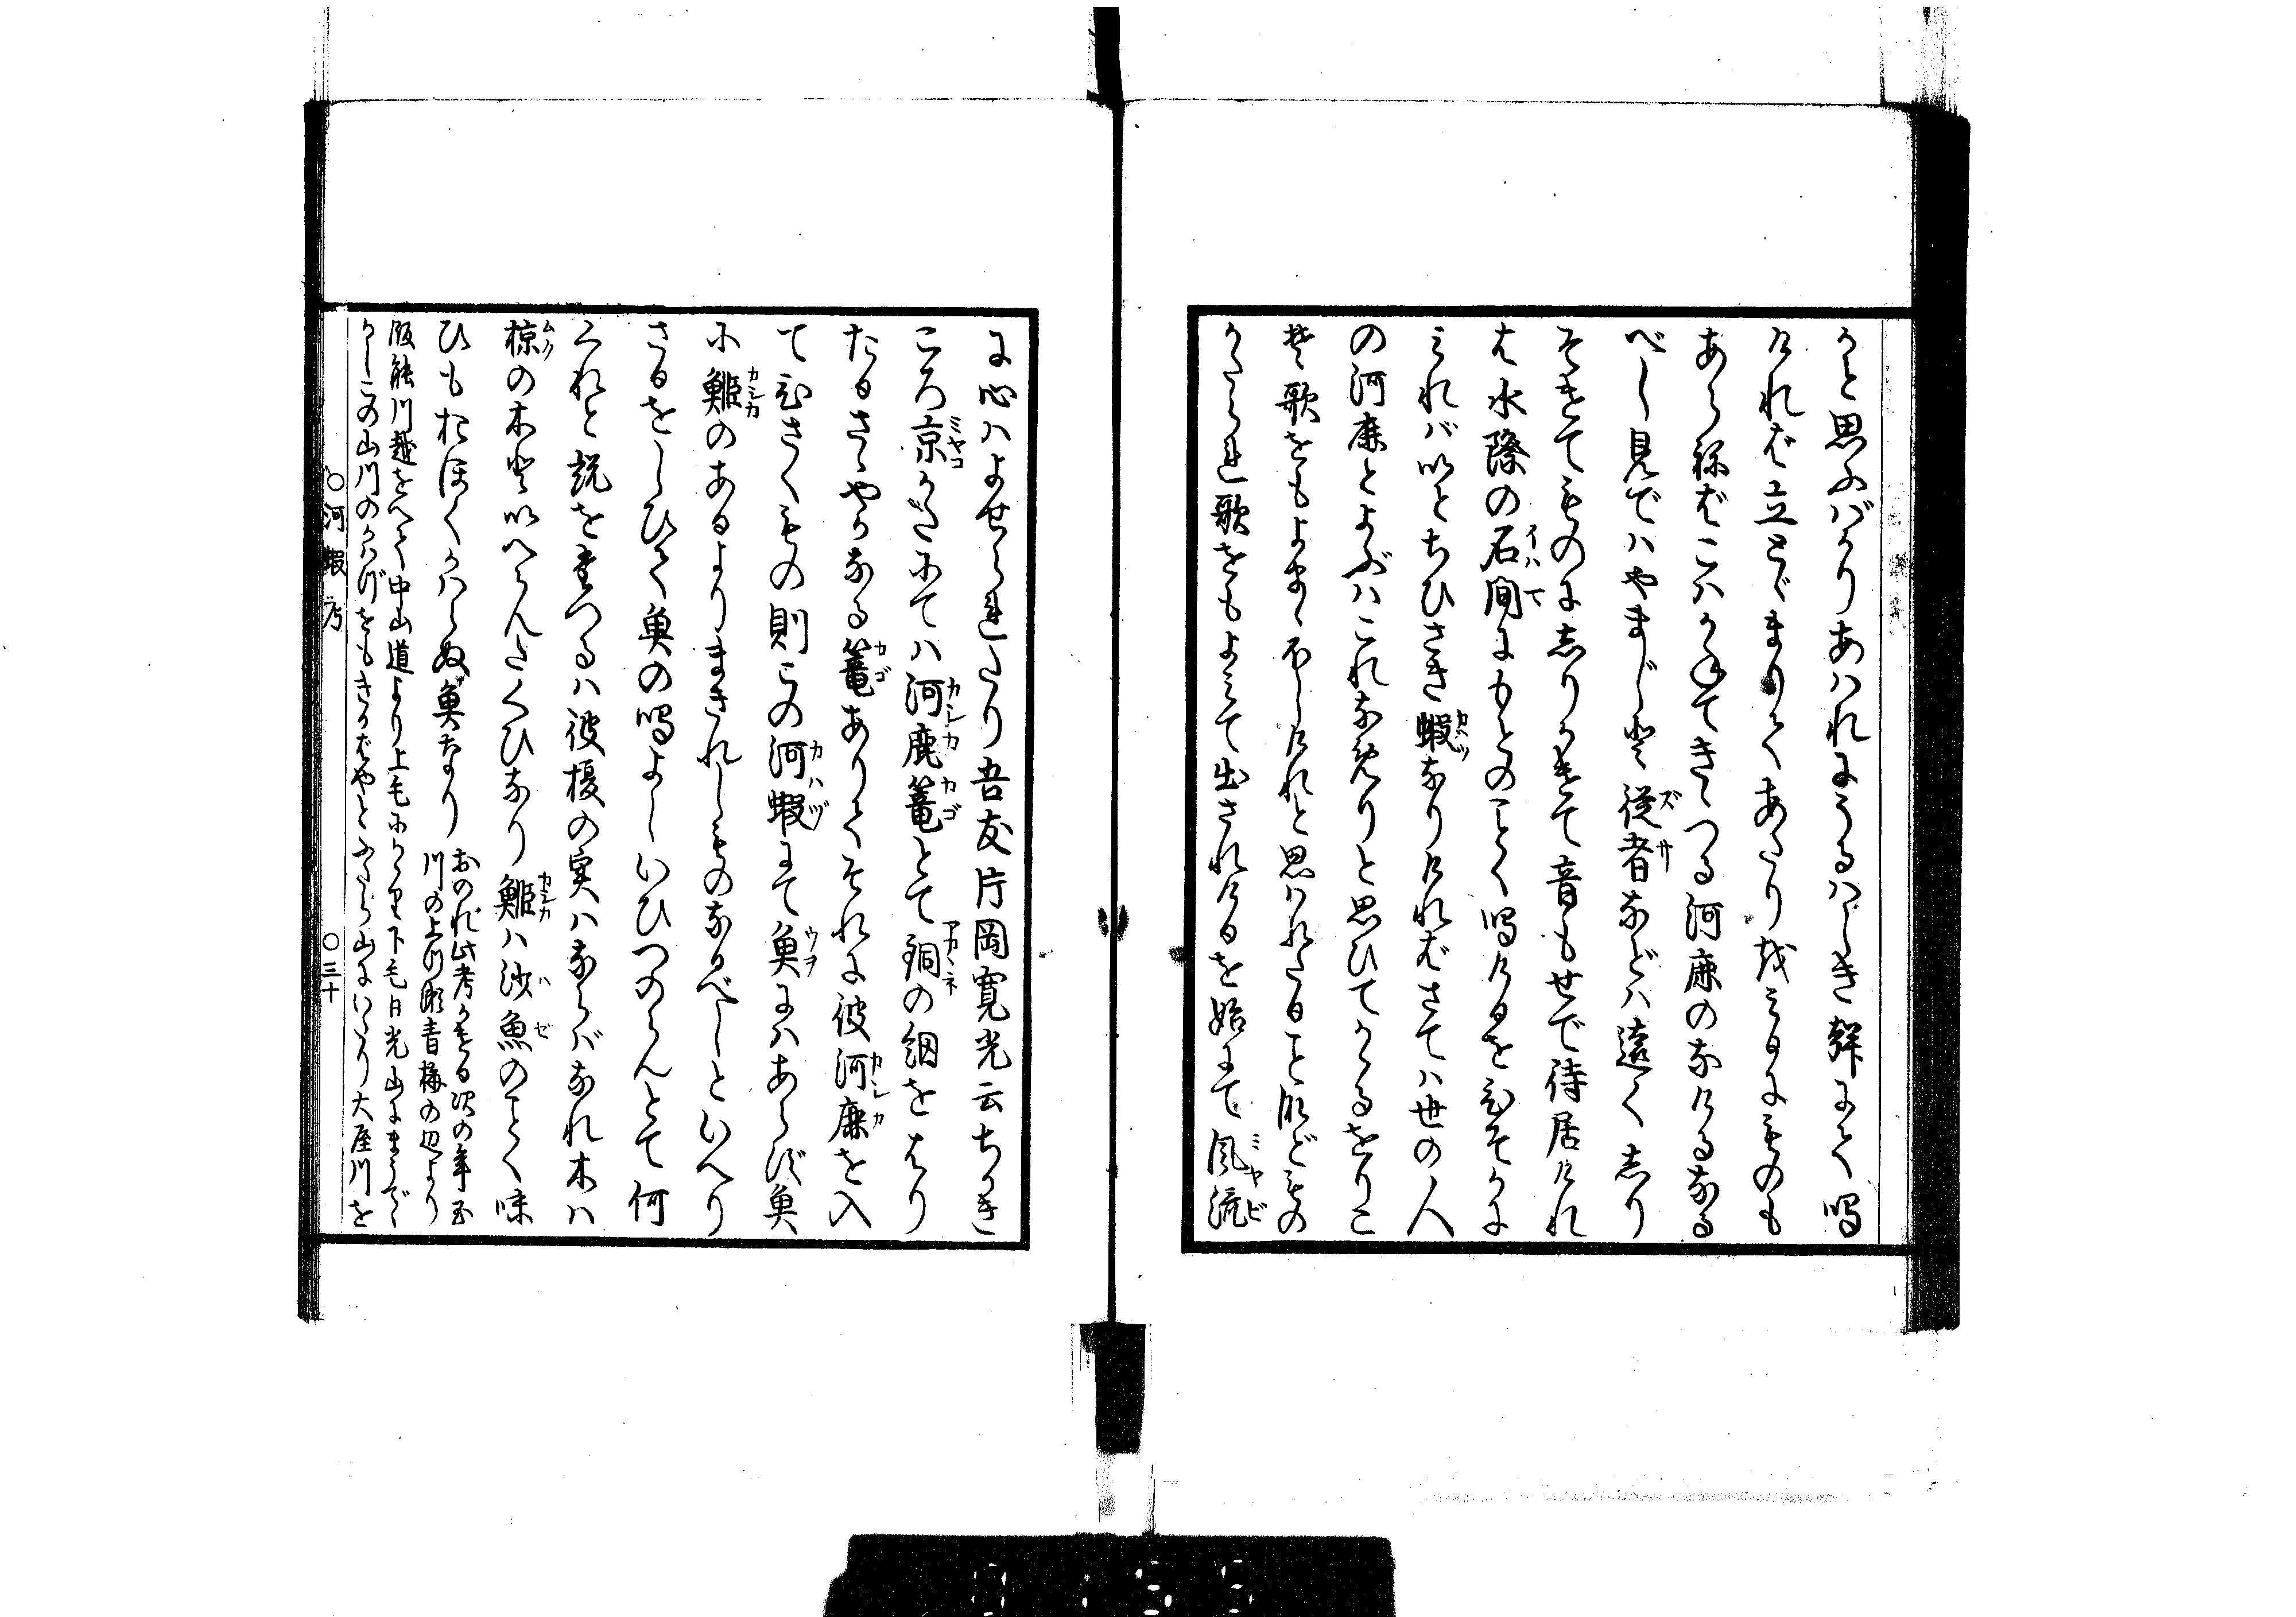 かと思ふばかりあはれにうるはしき声にて鳴
ければ立とゞまりてあたりをみるにものも
あらねばこはかねてきゝつる河鹿のなけるなる
べし見ではやまじと従者などは遠くしり
ぞきてものにしりかけて音もせで待居けれ
ば水際の石間にもとのごとく鳴けるをひそかに
みれバいとちひさき蝦なりければさてハ世の人
の河鹿とよぶハこれなめりと思ひてかへるをりに
ぞ歌をもよまゝほしけれと思ハれたることなどもの
かたられ歌をもよみて出されけるを始にて風流
に心ハよせられたり吾友片岡寛光云ちかき
ころ京かたにてハ河鹿籠とて銅の網をはり
たるさゝやかなる籠ありてそれに彼河鹿を入
てひさくもの則この河蝦にて魚にハあらず魚
に鯎のあるよりまきれしものなるべしといへり
さるをしひて魚の鳴よしいひつのらんとて何
くれと説を立つるハ彼榎の実ハならバなれ木ハ
椋の木といへらんたくひなり
ハ沙魚のごとく味
ひもおほくかはらぬ魚なり
おのれ此考かける次の年玉
川の上川彫青梅の辺より
飯能川越をへて中山道より上毛にかゝり下毛日光山にまうで
かしこの山川のかハづをもきかばやとふたら山にいたり大屋川を
○河蝦考
○三十